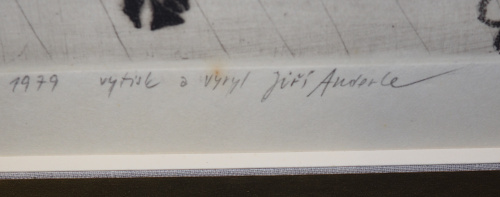 1979 vytisk a vyryl Jiří Anderle